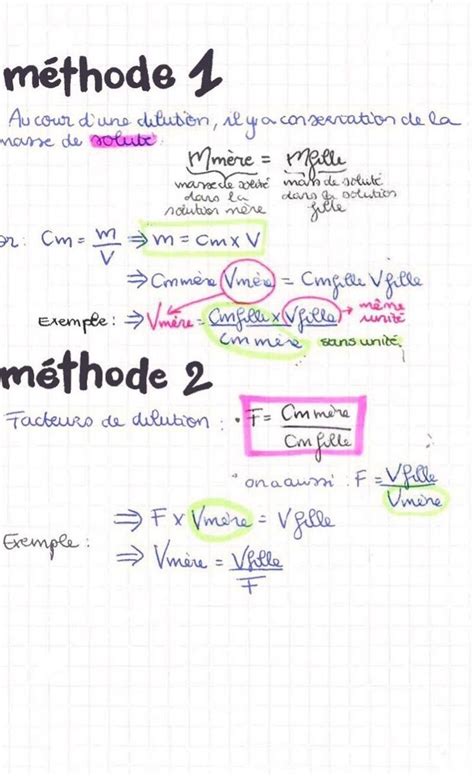 méthode 1
Au cour d'une dilution, il y a conservation de la
masse de soluté.
mmère = mfille
masse de soluté dans la solution mère
mass de soluté dans la solution fille
or : Cm = m/V ⇒ m = Cm x V
⇒ Cmmère Vmère = Cmfille Vfille
Exemple : ⇒ Vmère = Cmfille x Vfille / Cmmère → même unité
sans unité.
méthode 2
Facteurs de dilution : • F = Cmmère / Cmfille
• on a aussi : F = Vfille / Vmère
⇒ F x Vmère = Vfille
Exemple : ⇒ Vmère = Vfille / F